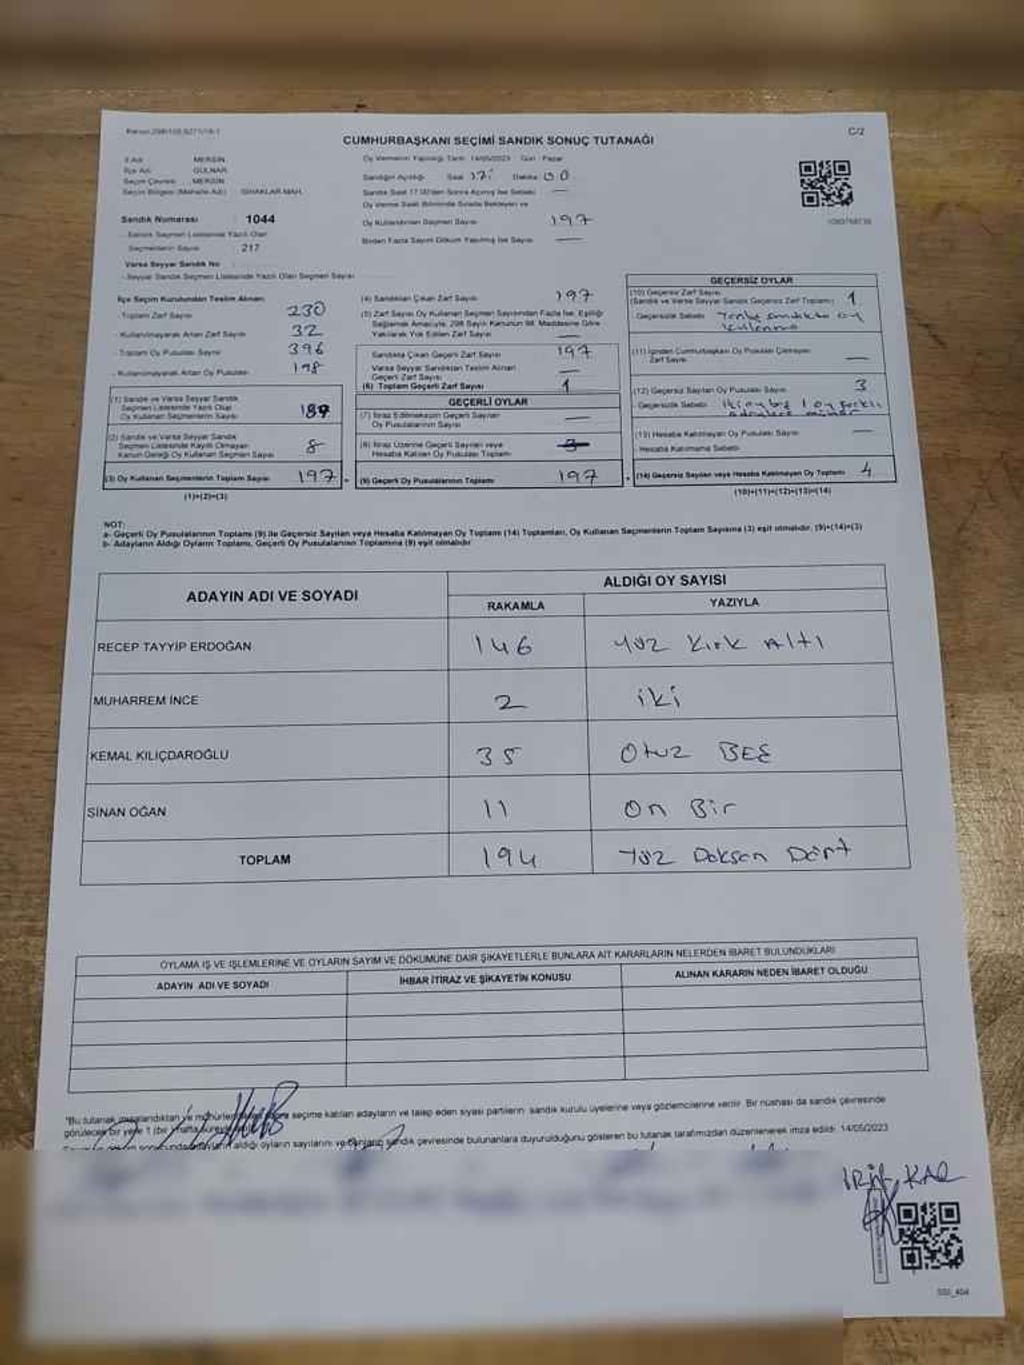 CUMHURBAŞKANI SEÇİMİ SANDIK SONUÇ TUTANAĞI
C/2
İl Adı MERSİN
İlçe Adı GÜLNAR
Seçim Çevresi MERSİN
Seçim Bölgesi (Mahalle Adı) ISHAKLAR MAH.
Sandık Numarası 1044
- Sandık Seçmen Listesinde Yazılı Olan
Seçmenlerin Sayısı 217
Varsa Seyyar Sandık No
- Seyyar Sandık Seçmen Listesinde Yazılı Olan Seçmen Sayısı
Oy Vermenin Yapıldığı Tarih 14/05/2023 Gün Pazar
Sandığın Açıldığı Saat 17: Dakika 00
Sandık Saat 17.00'den Sonra Açılmış İse Sebebi —
Oy Verme Saati Bitiminde Sırada Bekleyen ve
Oy Kullandırılan Seçmen Sayısı 197
Birden Fazla Sayım Döküm Yapılmış İse Sayısı —
İlçe Seçim Kurulundan Teslim Alınan
- Toplam Zarf Sayısı 230
- Kullanılmayarak Artan Zarf Sayısı 32
- Toplam Oy Pusulası Sayısı 396
- Kullanılmayarak Artan Oy Pusulası 198
(1) Sandık ve Varsa Seyyar Sandık
Seçmen Listesinde Yazılı Olup
Oy Kullanan Seçmenlerin Sayısı 189
(2) Sandık ve Varsa Seyyar Sandık
Seçmen Listesinde Kayıtlı Olmayan
Kanun Gereği Oy Kullanan Seçmen Sayısı 8
(3) Oy Kullanan Seçmenlerin Toplam Sayısı 197
(1)+(2)=(3)
(4) Sandıktan Çıkan Zarf Sayısı 197
(5) Zarf Sayısı Oy Kullanan Seçmen Sayısından Fazla İse, Eşitliği
Sağlamak Amacıyla, 298 Sayılı Kanunun 98. Maddesine Göre
Yakılarak Yok Edilen Zarf Sayısı —
Sandıkta Çıkan Geçerli Zarf Sayısı 197
Varsa Seyyar Sandıktan Teslim Alınan
Geçerli Zarf Sayısı —
(6) Toplam Geçerli Zarf Sayısı 1
GEÇERLİ OYLAR
(7) İtiraz Edilmeksizin Geçerli Sayılan
Oy Pusulalarının Sayısı —
(8) İtiraz Üzerine Geçerli Sayılan veya
Hesaba Katılan Oy Pusulaları Toplamı 3
(9) Geçerli Oy Pusulalarının Toplamı 197
GEÇERSİZ OYLAR
(10) Geçersiz Zarf Sayısı
(Sandık ve Varsa Seyyar Sandık Geçersiz Zarf Toplamı) 1
- Geçersizlik Sebebi
(11) İçinden Cumhurbaşkanı Oy Pusulası Çıkmayan
Zarf Sayısı —
(12) Geçersiz Sayılan Oy Pusulası Sayısı 3
- Geçersizlik Sebebi
(13) Hesaba Katılmayan Oy Pusulası Sayısı —
- Hesaba Katılmama Sebebi
(14) Geçersiz Sayılan veya Hesaba Katılmayan Oy Toplamı 4
(10)+(11)+(12)+(13)=(14)
NOT:
a- Geçerli Oy Pusulalarının Toplamı (9) ile Geçersiz Sayılan veya Hesaba Katılmayan Oy Toplamı (14) Toplamları, Oy Kullanan Seçmenlerin Toplam Sayısına (3) eşit olmalıdır. (9)+(14)=(3)
b- Adayların Aldığı Oyların Toplamı, Geçerli Oy Pusulalarının Toplamına (9) eşit olmalıdır
ADAYIN ADI VE SOYADI
ALDIĞI OY SAYISI
RAKAMLA YAZIYLA
RECEP TAYYİP ERDOĞAN 146 Yüz Kırk Altı
MUHARREM İNCE 2 iki
KEMAL KILIÇDAROĞLU 35 Otuz BEŞ
SİNAN OĞAN 11 On Bir
TOPLAM 194 Yüz Doksan Dört
OYLAMA İŞ VE İŞLEMLERİNE VE OYLARIN SAYIM VE DÖKÜMÜNE DAİR ŞİKAYETLERLE BUNLARA AİT KARARLARIN NELERDEN İBARET BULUNDUKLARI
ADAYIN ADI VE SOYADI İHBAR İTİRAZ VE ŞİKAYETİN KONUSU ALINAN KARARIN NEDEN İBARET OLDUĞU
seçime katılan adayların ve talep eden siyasi partilerin sandık kurulu üyelerine veya gözlemcilerine verilir. Bir nüshası da sandık çevresinde
görülecek bir yere 1 (bir)
aldığı oyların sayılarını ve sandık çevresinde bulunanlara duyurulduğunu gösteren bu tutanak tarafımızdan düzenlenerek imza edildi. 14/05/2023